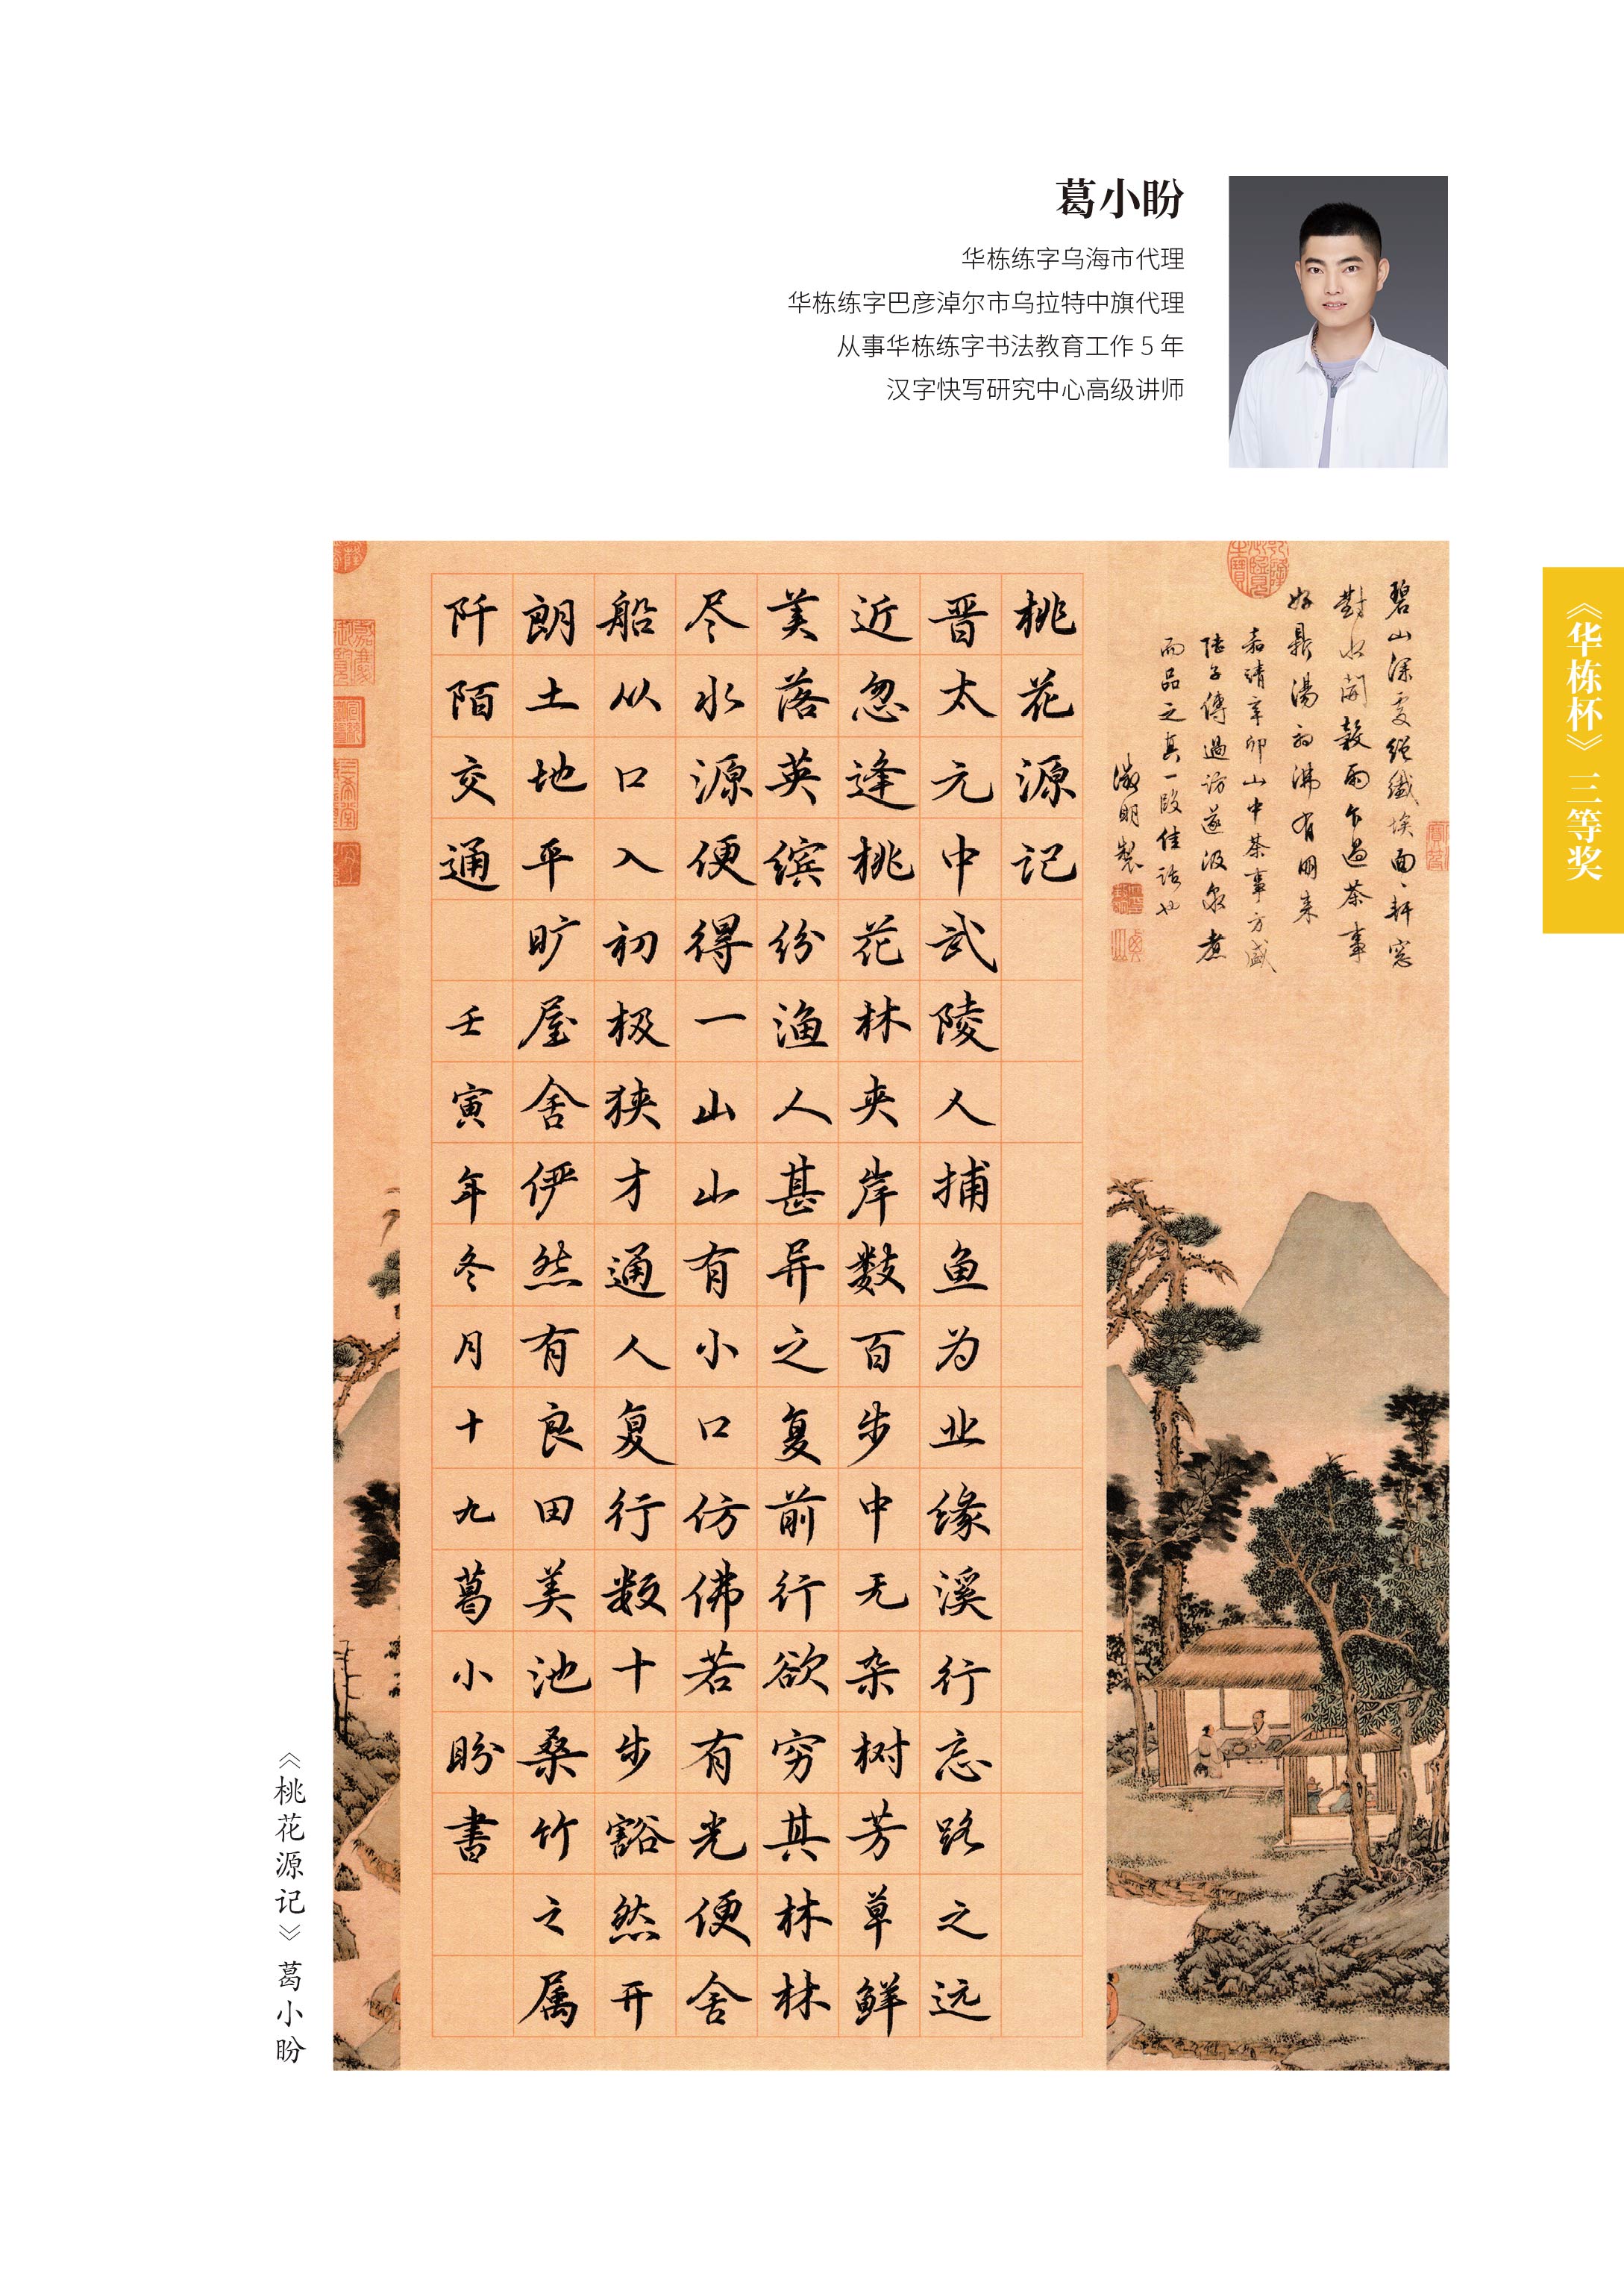 葛小盼
华栋练字乌海市代理
华栋练字巴彦淖尔市乌拉特中旗代理
从事华栋练字书法教育工作 5 年
汉字快写研究中心高级讲师
《华栋杯》三等奖
碧山深處絕纖埃面々軒窓
對水開穀雨乍過茶事
好鼎湯初沸有朋来
嘉靖辛卯山中茶事方盛
陸子傳過訪遂汲泉煮
而品之真一段佳話也
徵明製
桃花源记
晋太元中武陵人捕鱼为业缘溪行忘路之远
近忽逢桃花林夹岸数百步中无杂树芳草鲜
美落英缤纷渔人甚异之复前行欲穷其林林
尽水源便得一山山有小口仿佛若有光便舍
船从口入初极狭才通人复行数十步豁然开
朗土地平旷屋舍俨然有良田美池桑竹之属
阡陌交通 壬寅年冬月十九葛小盼書
《桃花源记》葛小盼